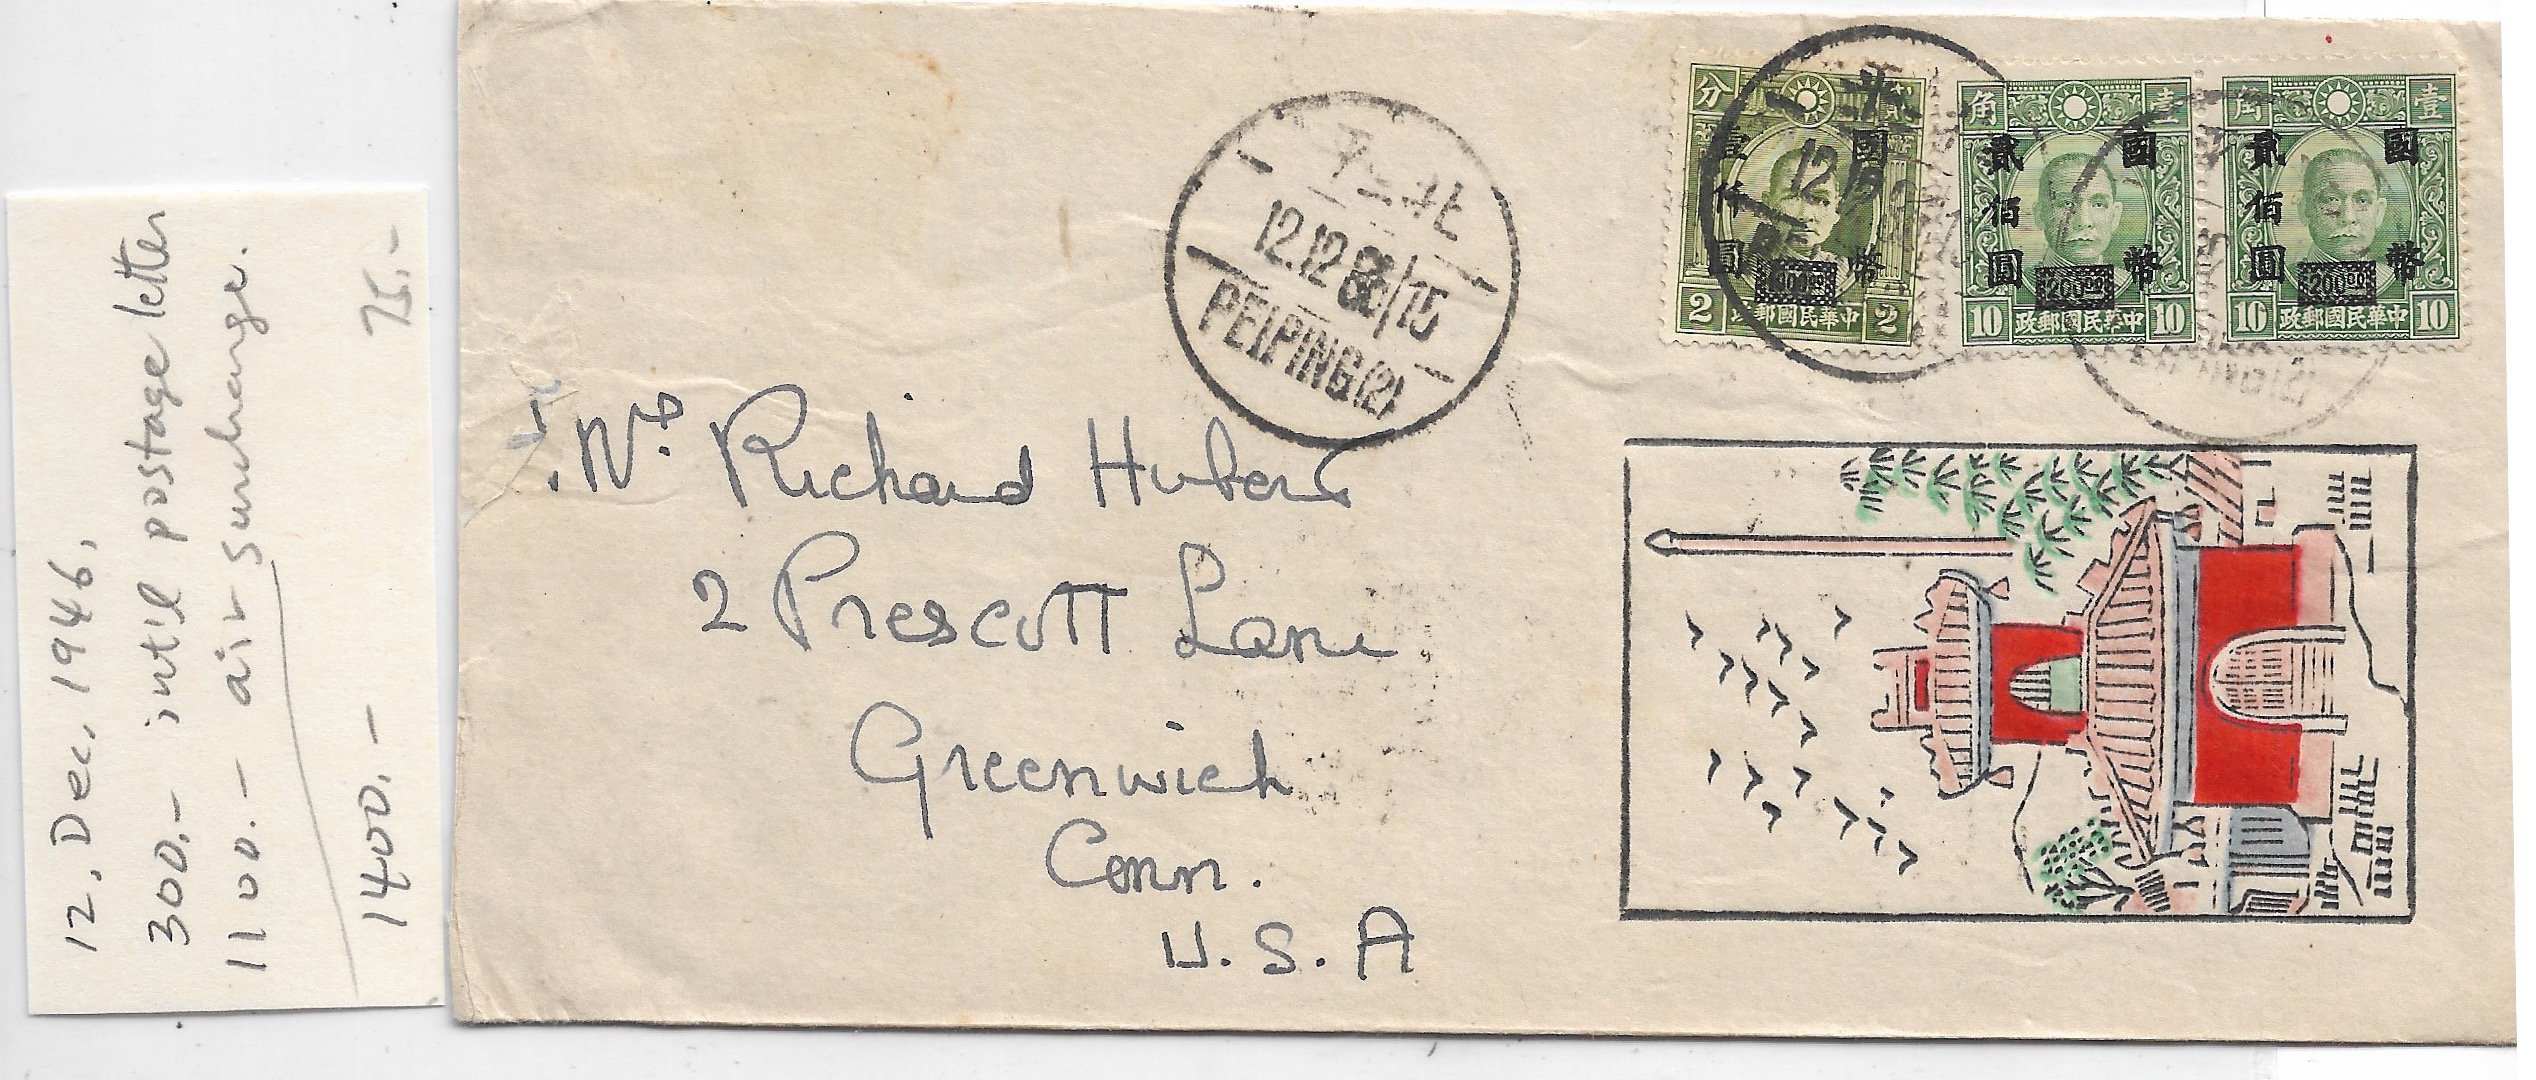 12. Dec, 1946,
300.- int'l postage letter
1100.- air surcharge.
1400.- 75.-
平 北
12.12 36/15
PEIPING (2)
分
壹仟圓
國幣
1000.00
2 政郵國民華中 2
角 壹
貳佰圓
國幣
200.00
10 政郵國民華中 10
角 壹
貳佰圓
國幣
200.00
10 政郵國民華中 10
12
Richard Hubert
2 Prescott Lane
Greenwich
Conn.
U. S. A